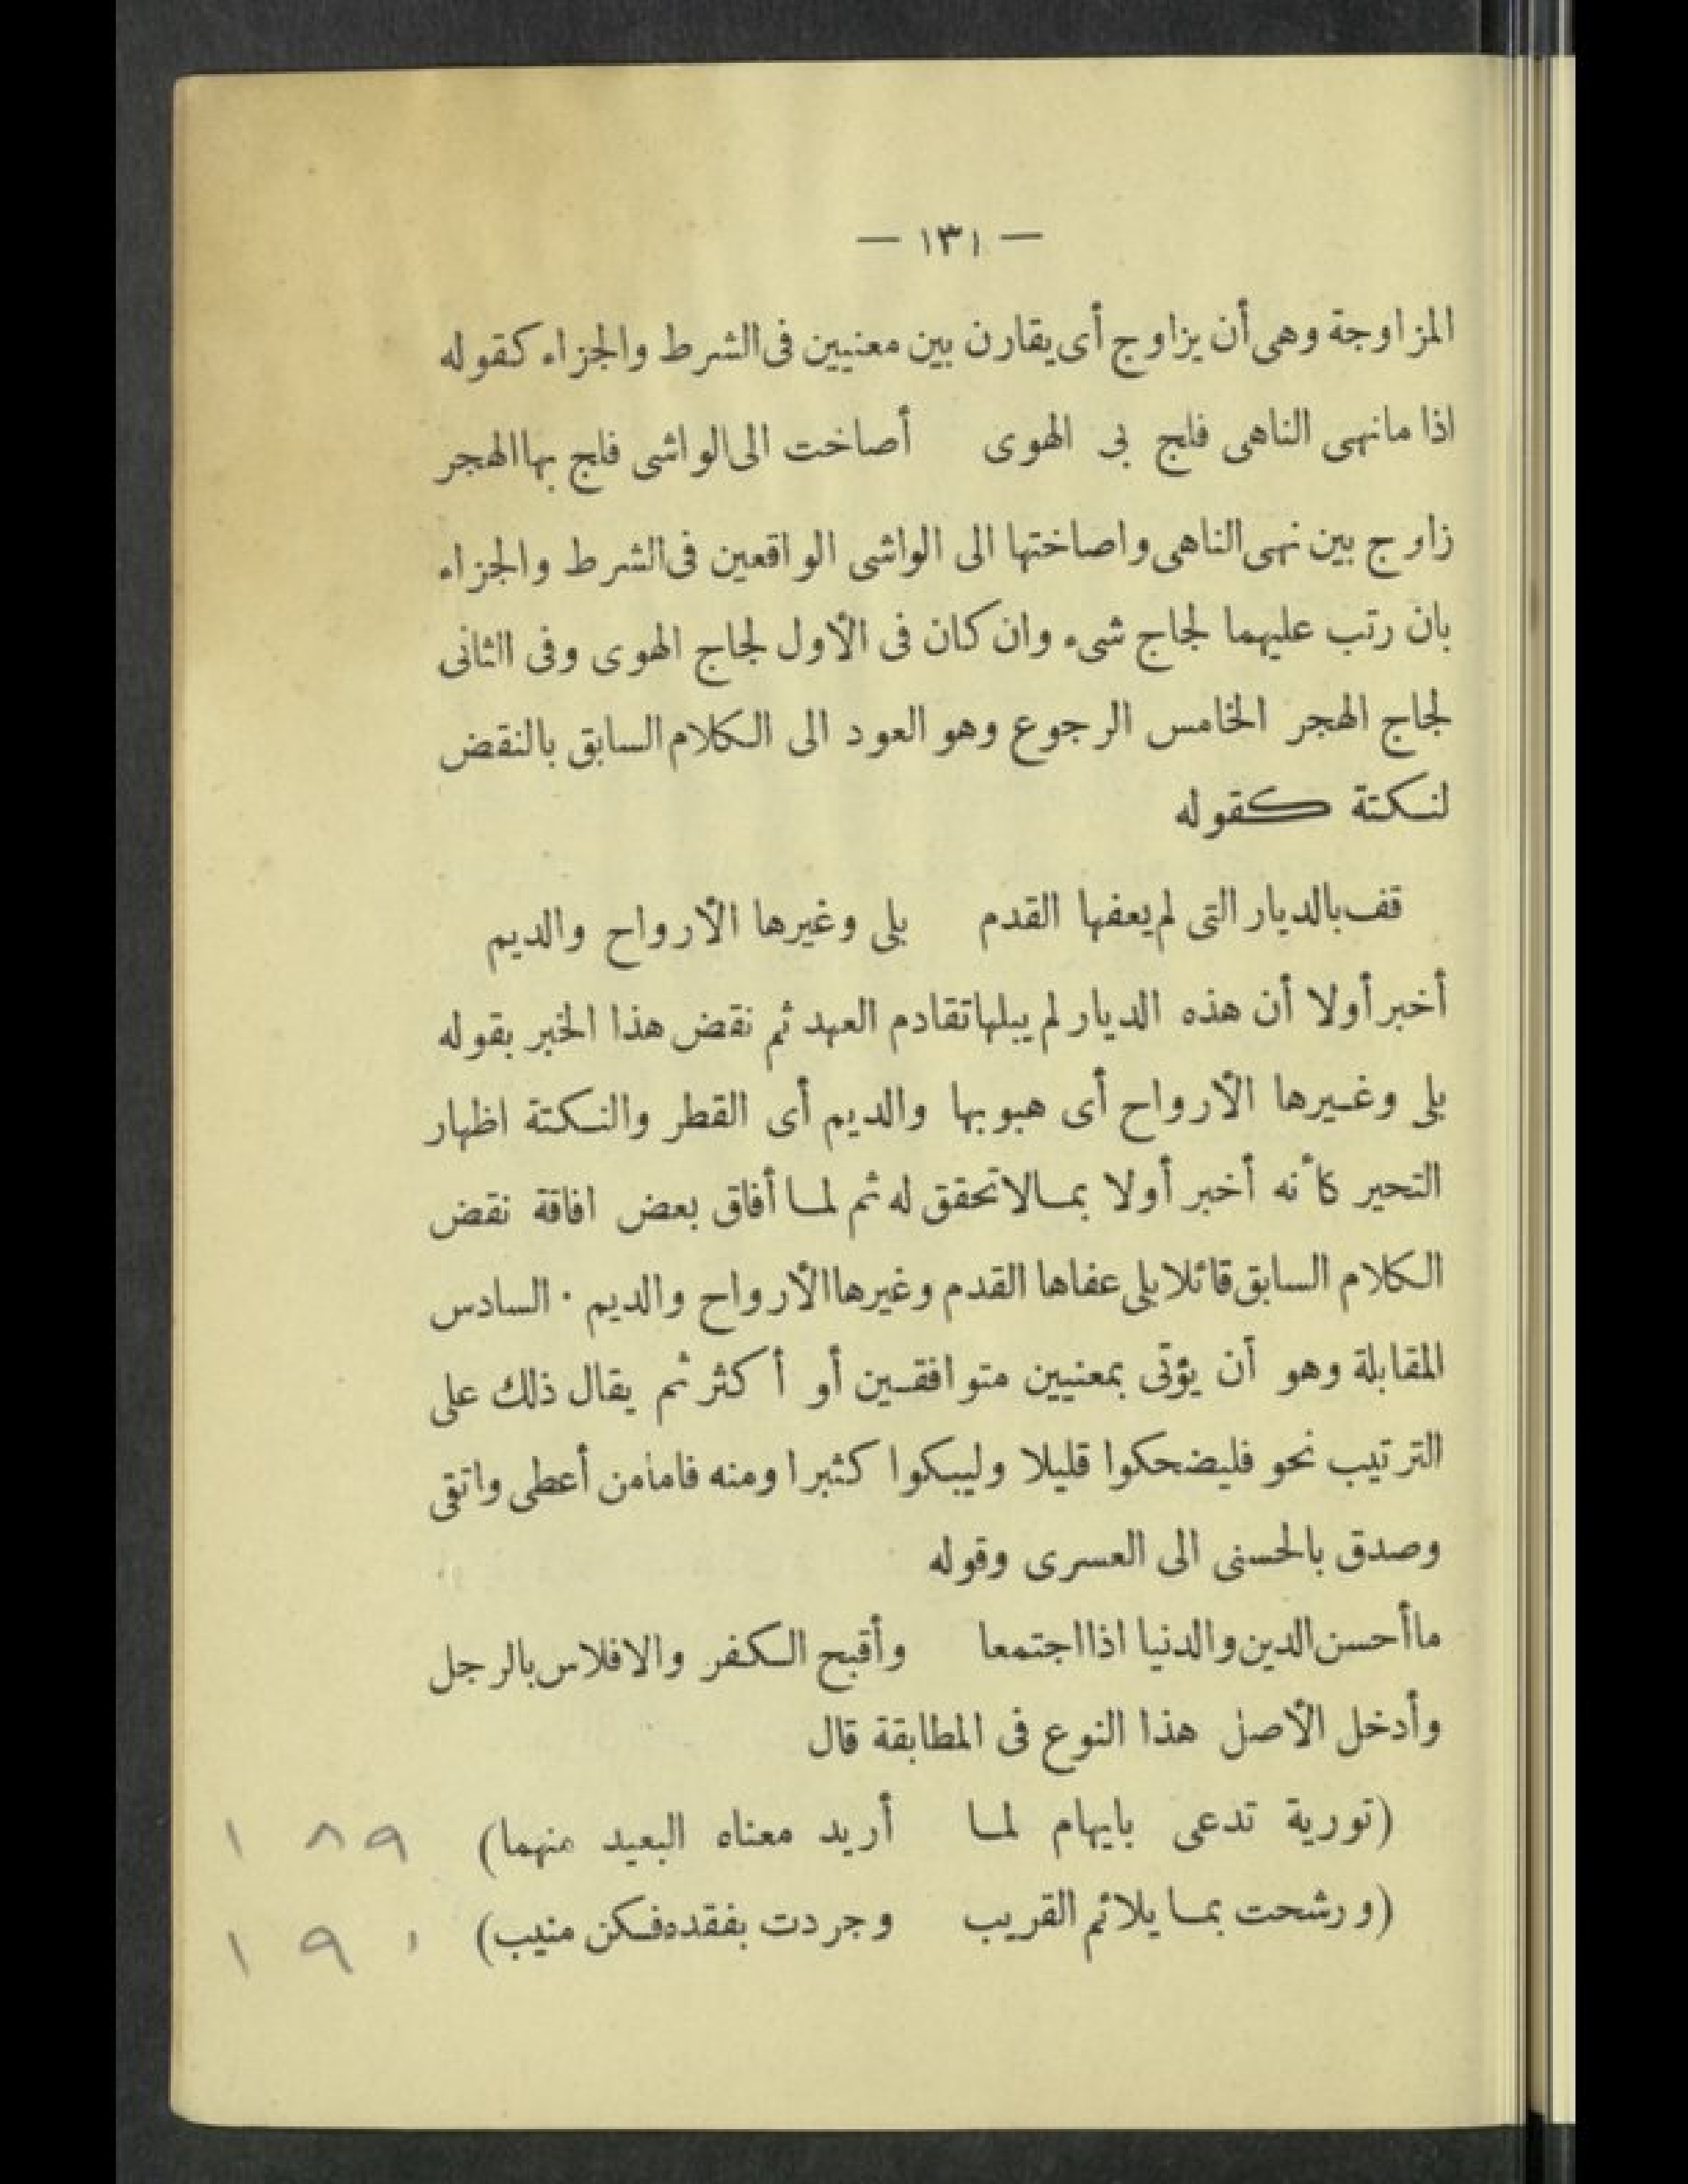 — ١٣١ —
المزاوجة وهى أن يزاوج أى يقارن بين معنيين فى الشرط والجزاء كقوله
اذا ما نهى الناهى فلج بى الهوى أصاخت الى الواشى فلج بها الهجر
زاوج بين نهى الناهى واصاختها الى الواشى الواقعين فى الشرط والجزاء
بان رتب عليهما لجاج شىء وان كان فى الأول لجاج الهوى وفى الثانى
لجاج الهجر الخامس الرجوع وهو العود الى الكلام السابق بالنقض
لنكتة كقوله
قف بالديار التى لم يعفها القدم بلى وغيرها الأرواح والديم
أخبر أولا أن هذه الديار لم يبلها تقادم العهد ثم نقض هذا الخبر بقوله
بلى وغيرها الأرواح أى هبوبها والديم أى القطر والنكتة اظهار
التحير كأنه أخبر أولا بما لا تحقق له ثم لما أفاق بعض افاقة نقض
الكلام السابق قائلا بلى عفاها القدم وغيرها الأرواح والديم · السادس
المقابلة وهو أن يؤتى بمعنيين متوافقين أو أكثر ثم يقال ذلك على
الترتيب نحو فليضحكوا قليلا وليبكوا كثيرا ومنه فاما من أعطى واتقى
وصدق بالحسنى الى العسرى وقوله
ما أحسن الدين والدنيا اذا اجتمعا وأقبح الكفر والافلاس بالرجل
وأدخل الأصل هذا النوع فى المطابقة قال
(تورية تدعى بايهام لما أريد معناه البعيد منهما) ١٨٩
(ورشحت بما يلائم القريب وجردت بفقده فكن منيب) ١٩٠